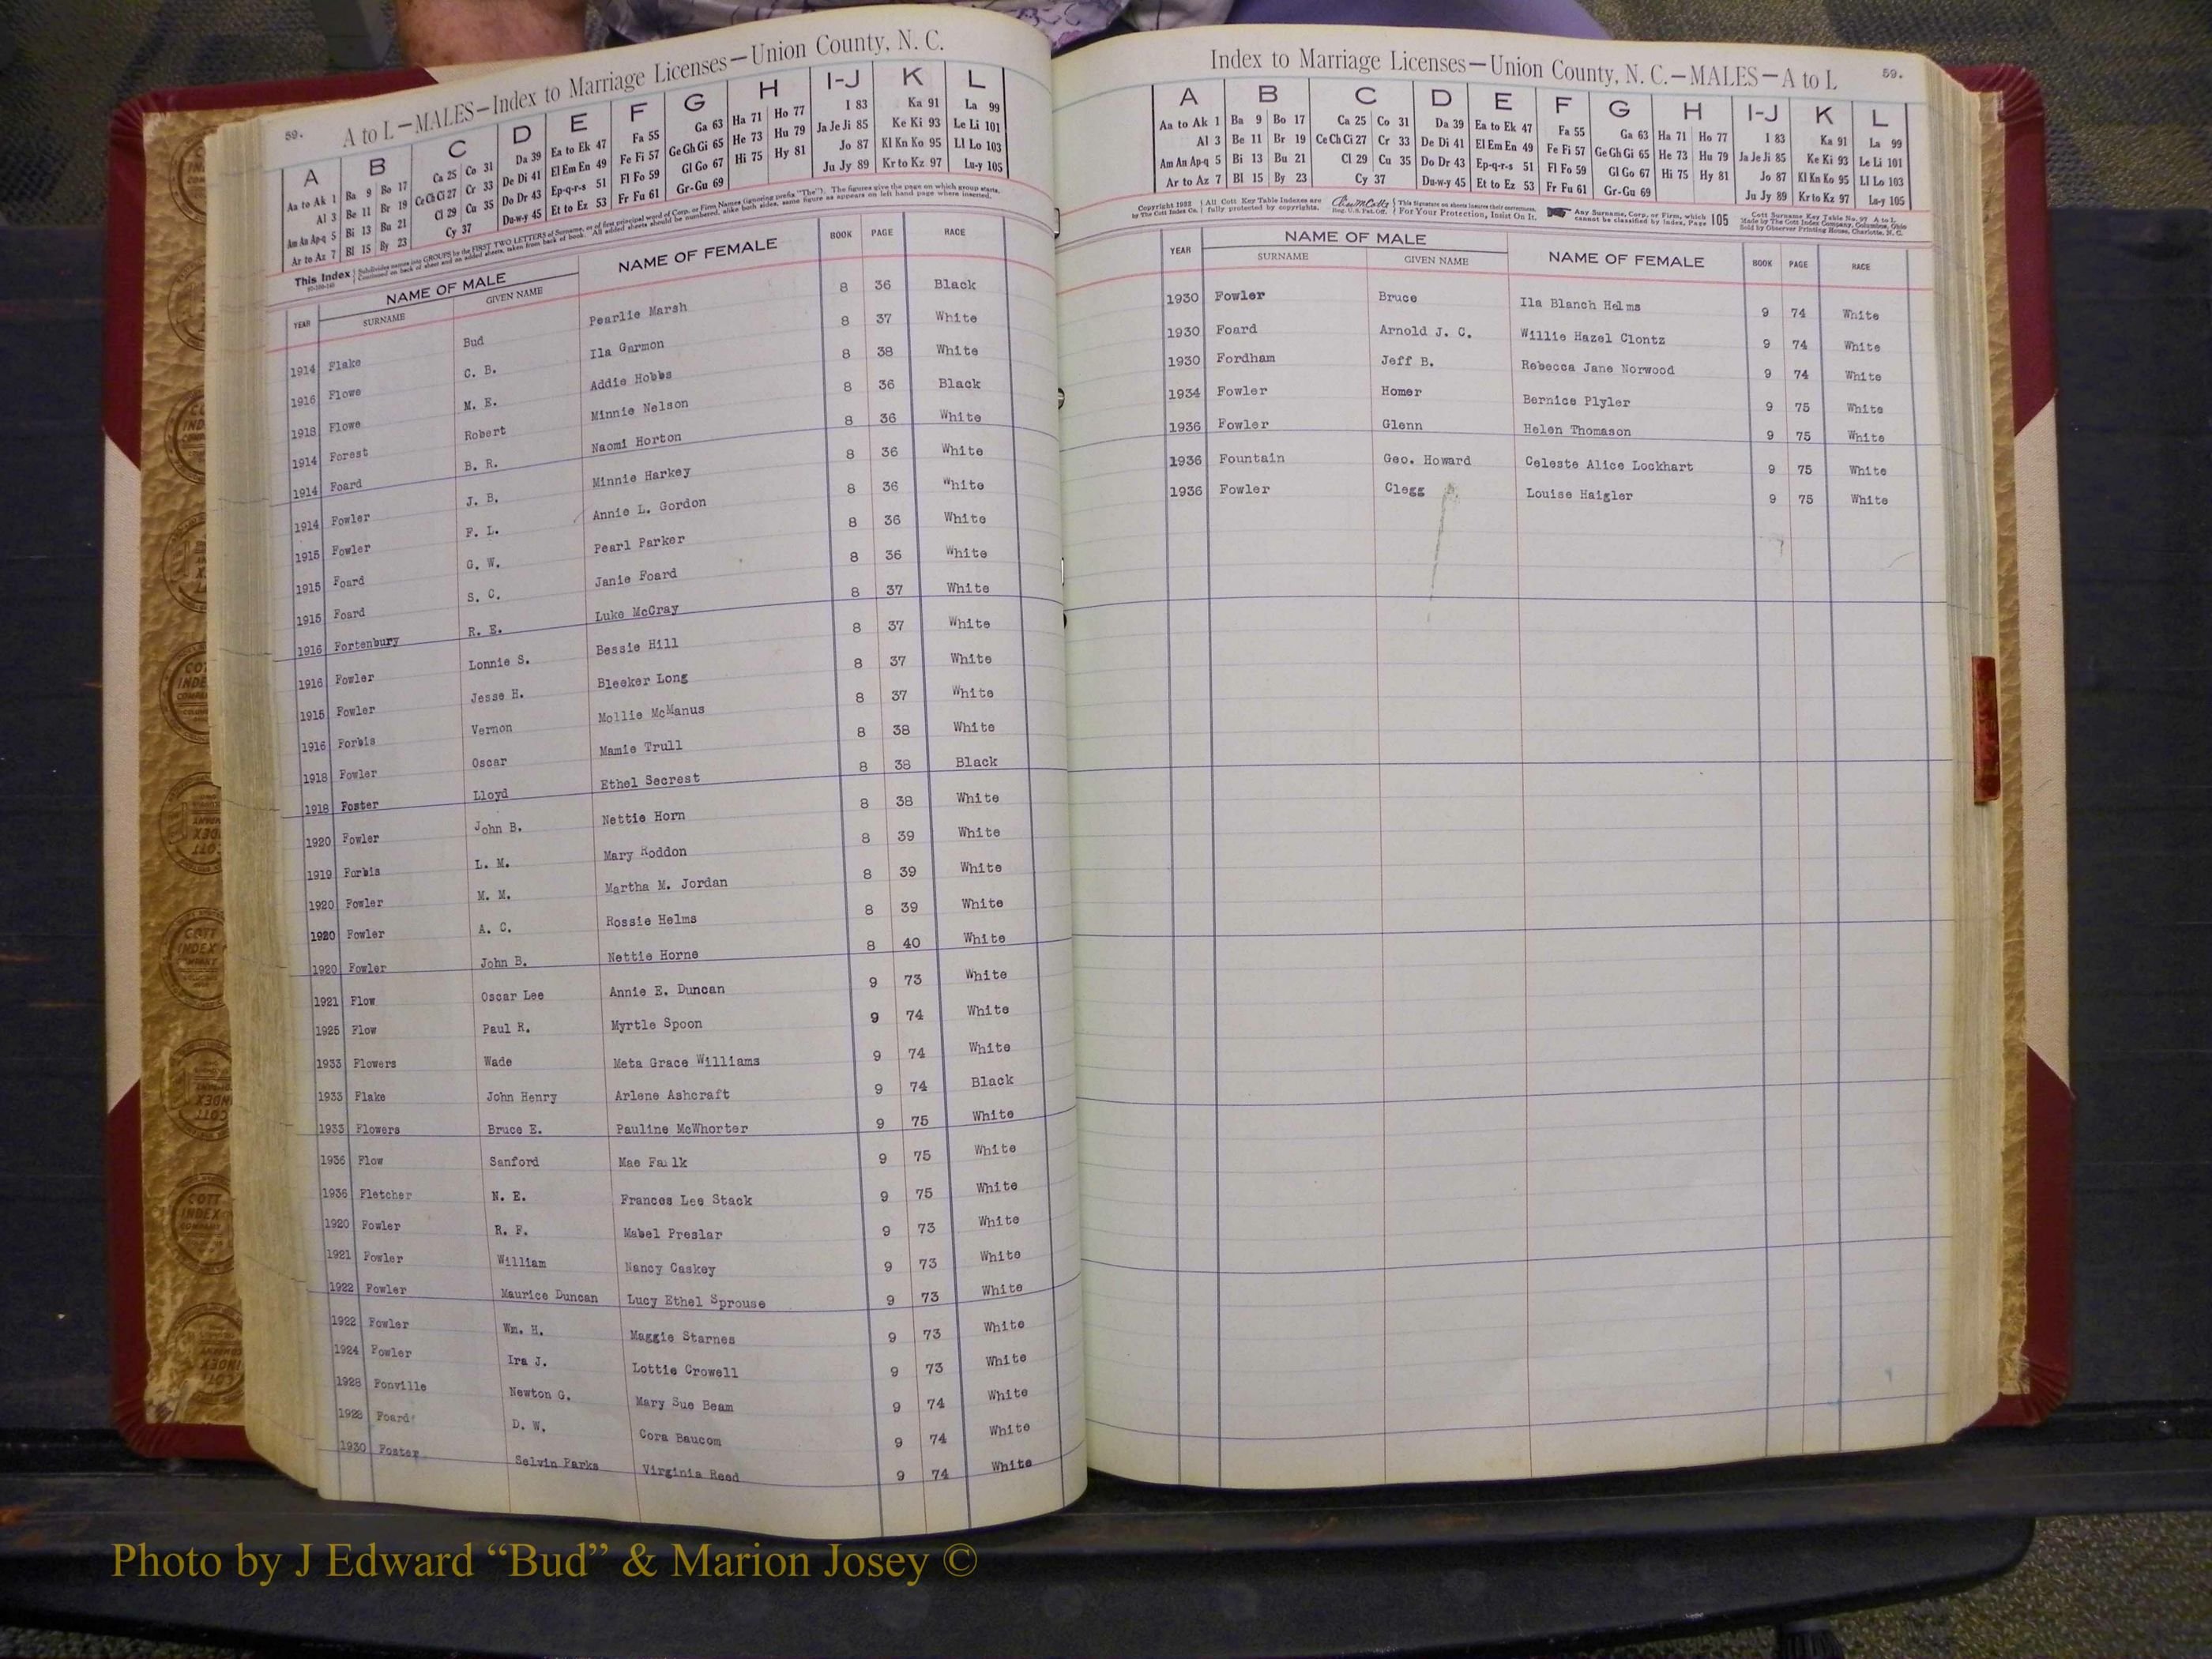 59.
A to L—MALES—Index to Marriage Licenses—Union County, N. C.
A B C D E F G H I-J K L
Aa to Ak 1 Ba 9 Bo 17 Ca 25 Co 31 Da 39 Ea to Ek 47 Fa 55 Ga 63 Ha 71 Ho 77 I 83 Ka 91 La 99
Al 3 Be 11 Br 19 Ce Ch Ci 27 Cr 33 De Di 41 El Em En 49 Fe Fi 57 Ge Gh Gi 65 He 73 Hu 79 Ja Je Ji 85 Ke Ki 93 Le Li 101
Am An Ap-q 5 Bi 13 Bu 21 Cl 29 Cu 35 Do Dr 43 Ep-q-r-s 51 Fl Fo 59 Gl Go 67 Hi 75 Hy 81 Jo 87 Kl Kn Ko 95 Ll Lo 103
Ar to Az 7 Bl 15 By 23 Cy 37 Du-w-y 45 Et to Ez 53 Fr Fu 61 Gr-Gu 69 Ju Jy 89 Kr to Kz 97 Lu-y 105
This Index Subdivides names into GROUPS by the FIRST TWO LETTERS of Surname, or of first principal word of Corp. or Firm Names (ignoring prefix "The"). The figures give the page on which group starts.
Continued on back of sheet and on added sheets, taken from back of book. All added sheets should be numbered, alike both sides, same figure as appears on left hand page where inserted.
YEAR NAME OF MALE NAME OF FEMALE BOOK PAGE RACE
SURNAME GIVEN NAME
1914 Flake Bud Pearlie Marsh 8 36 Black
1916 Flowe C. B. Ila Garmon 8 37 White
1918 Flowe M. E. Addie Hobbs 8 38 White
1914 Forest Robert Minnie Nelson 8 36 Black
1914 Foard B. R. Naomi Horton 8 36 White
1914 Fowler J. B. Minnie Harkey 8 36 White
1915 Fowler F. L. Annie L. Gordon 8 36 White
1915 Foard G. W. Pearl Parker 8 36 White
1915 Foard S. C. Janie Foard 8 36 White
1916 Fortenbury R. E. Luke McCray 8 37 White
1916 Fowler Lonnie S. Bessie Hill 8 37 White
1915 Fowler Jesse H. Bleeker Long 8 37 White
1916 Forbis Vernon Mollie McManus 8 37 White
1918 Fowler Oscar Mamie Trull 8 38 White
1918 Foster Lloyd Ethel Secrest 8 38 Black
1920 Fowler John B. Nettie Horn 8 38 White
1919 Forbis L. M. Mary Roddon 8 39 White
1920 Fowler M. M. Martha M. Jordan 8 39 White
1920 Fowler A. C. Rossie Helms 8 39 White
1920 Fowler John B. Nettie Horne 8 40 White
1921 Flow Oscar Lee Annie E. Duncan 9 73 White
1925 Flow Paul R. Myrtle Spoon 9 74 White
1933 Flowers Wade Meta Grace Williams 9 74 White
1933 Flake John Henry Arlene Ashcraft 9 74 Black
1933 Flowers Bruce E. Pauline McWhorter 9 75 White
1936 Flow Sanford Mae Faulk 9 75 White
1936 Fletcher N. E. Frances Lee Stack 9 75 White
1920 Fowler R. F. Mabel Preslar 9 73 White
1921 Fowler William Nancy Caskey 9 73 White
1922 Fowler Maurice Duncan Lucy Ethel Sprouse 9 73 White
1922 Fowler Wm. H. Maggie Starnes 9 73 White
1924 Fowler Ira J. Lottie Crowell 9 73 White
1928 Fonville Newton G. Mary Sue Beam 9 74 White
1928 Foard D. W. Cora Baucom 9 74 White
1930 Foster Selvin Parks Virginia Reed 9 74 White
Index to Marriage Licenses—Union County, N. C.—MALES—A to L
59.
A B C D E F G H I-J K L
Aa to Ak 1 Ba 9 Bo 17 Ca 25 Co 31 Da 39 Ea to Ek 47 Fa 55 Ga 63 Ha 71 Ho 77 I 83 Ka 91 La 99
Al 3 Be 11 Br 19 Ce Ch Ci 27 Cr 33 De Di 41 El Em En 49 Fe Fi 57 Ge Gh Gi 65 He 73 Hu 79 Ja Je Ji 85 Ke Ki 93 Le Li 101
Am An Ap-q 5 Bi 13 Bu 21 Cl 29 Cu 35 Do Dr 43 Ep-q-r-s 51 Fl Fo 59 Gl Go 67 Hi 75 Hy 81 Jo 87 Kl Kn Ko 95 Ll Lo 103
Ar to Az 7 Bl 15 By 23 Cy 37 Du-w-y 45 Et to Ez 53 Fr Fu 61 Gr-Gu 69 Ju Jy 89 Kr to Kz 97 Lu-y 105
Copyright 1932 All Cott Key Table Indexes are This Signature on sheets insures their correctness. Any Surname, Corp. or Firm, which 105 Cott Surname Key Table No. 97 A to L
by The Cott Index Co. fully protected by copyrights. Reg. U.S. Pat. Off. For Your Protection, Insist On It. cannot be classified by Index, Page Made by The Cott Index Company, Columbus, Ohio
Sold by Observer Printing House, Charlotte, N. C.
YEAR NAME OF MALE NAME OF FEMALE BOOK PAGE RACE
SURNAME GIVEN NAME
1930 Fowler Bruce Ila Blanch Helms 9 74 White
1930 Foard Arnold J. C. Willie Hazel Clontz 9 74 White
1930 Fordham Jeff B. Rebecca Jane Norwood 9 74 White
1934 Fowler Homer Bernice Plyler 9 75 White
1936 Fowler Glenn Helen Thomason 9 75 White
1936 Fountain Geo. Howard Celeste Alice Lockhart 9 75 White
1936 Fowler Clegg Louise Haigler 9 75 White
Photo by J Edward “Bud” & Marion Josey ©